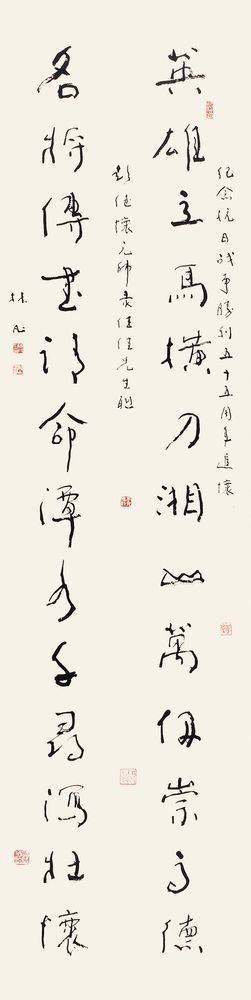 纪念抗日战争勝利五十五周年追懷
英雄立馬橫刀湘山萬仞崇高德
彭德懷元帥录先生聯
名將傳書請命潭水千尋瀉壯懷
林凡